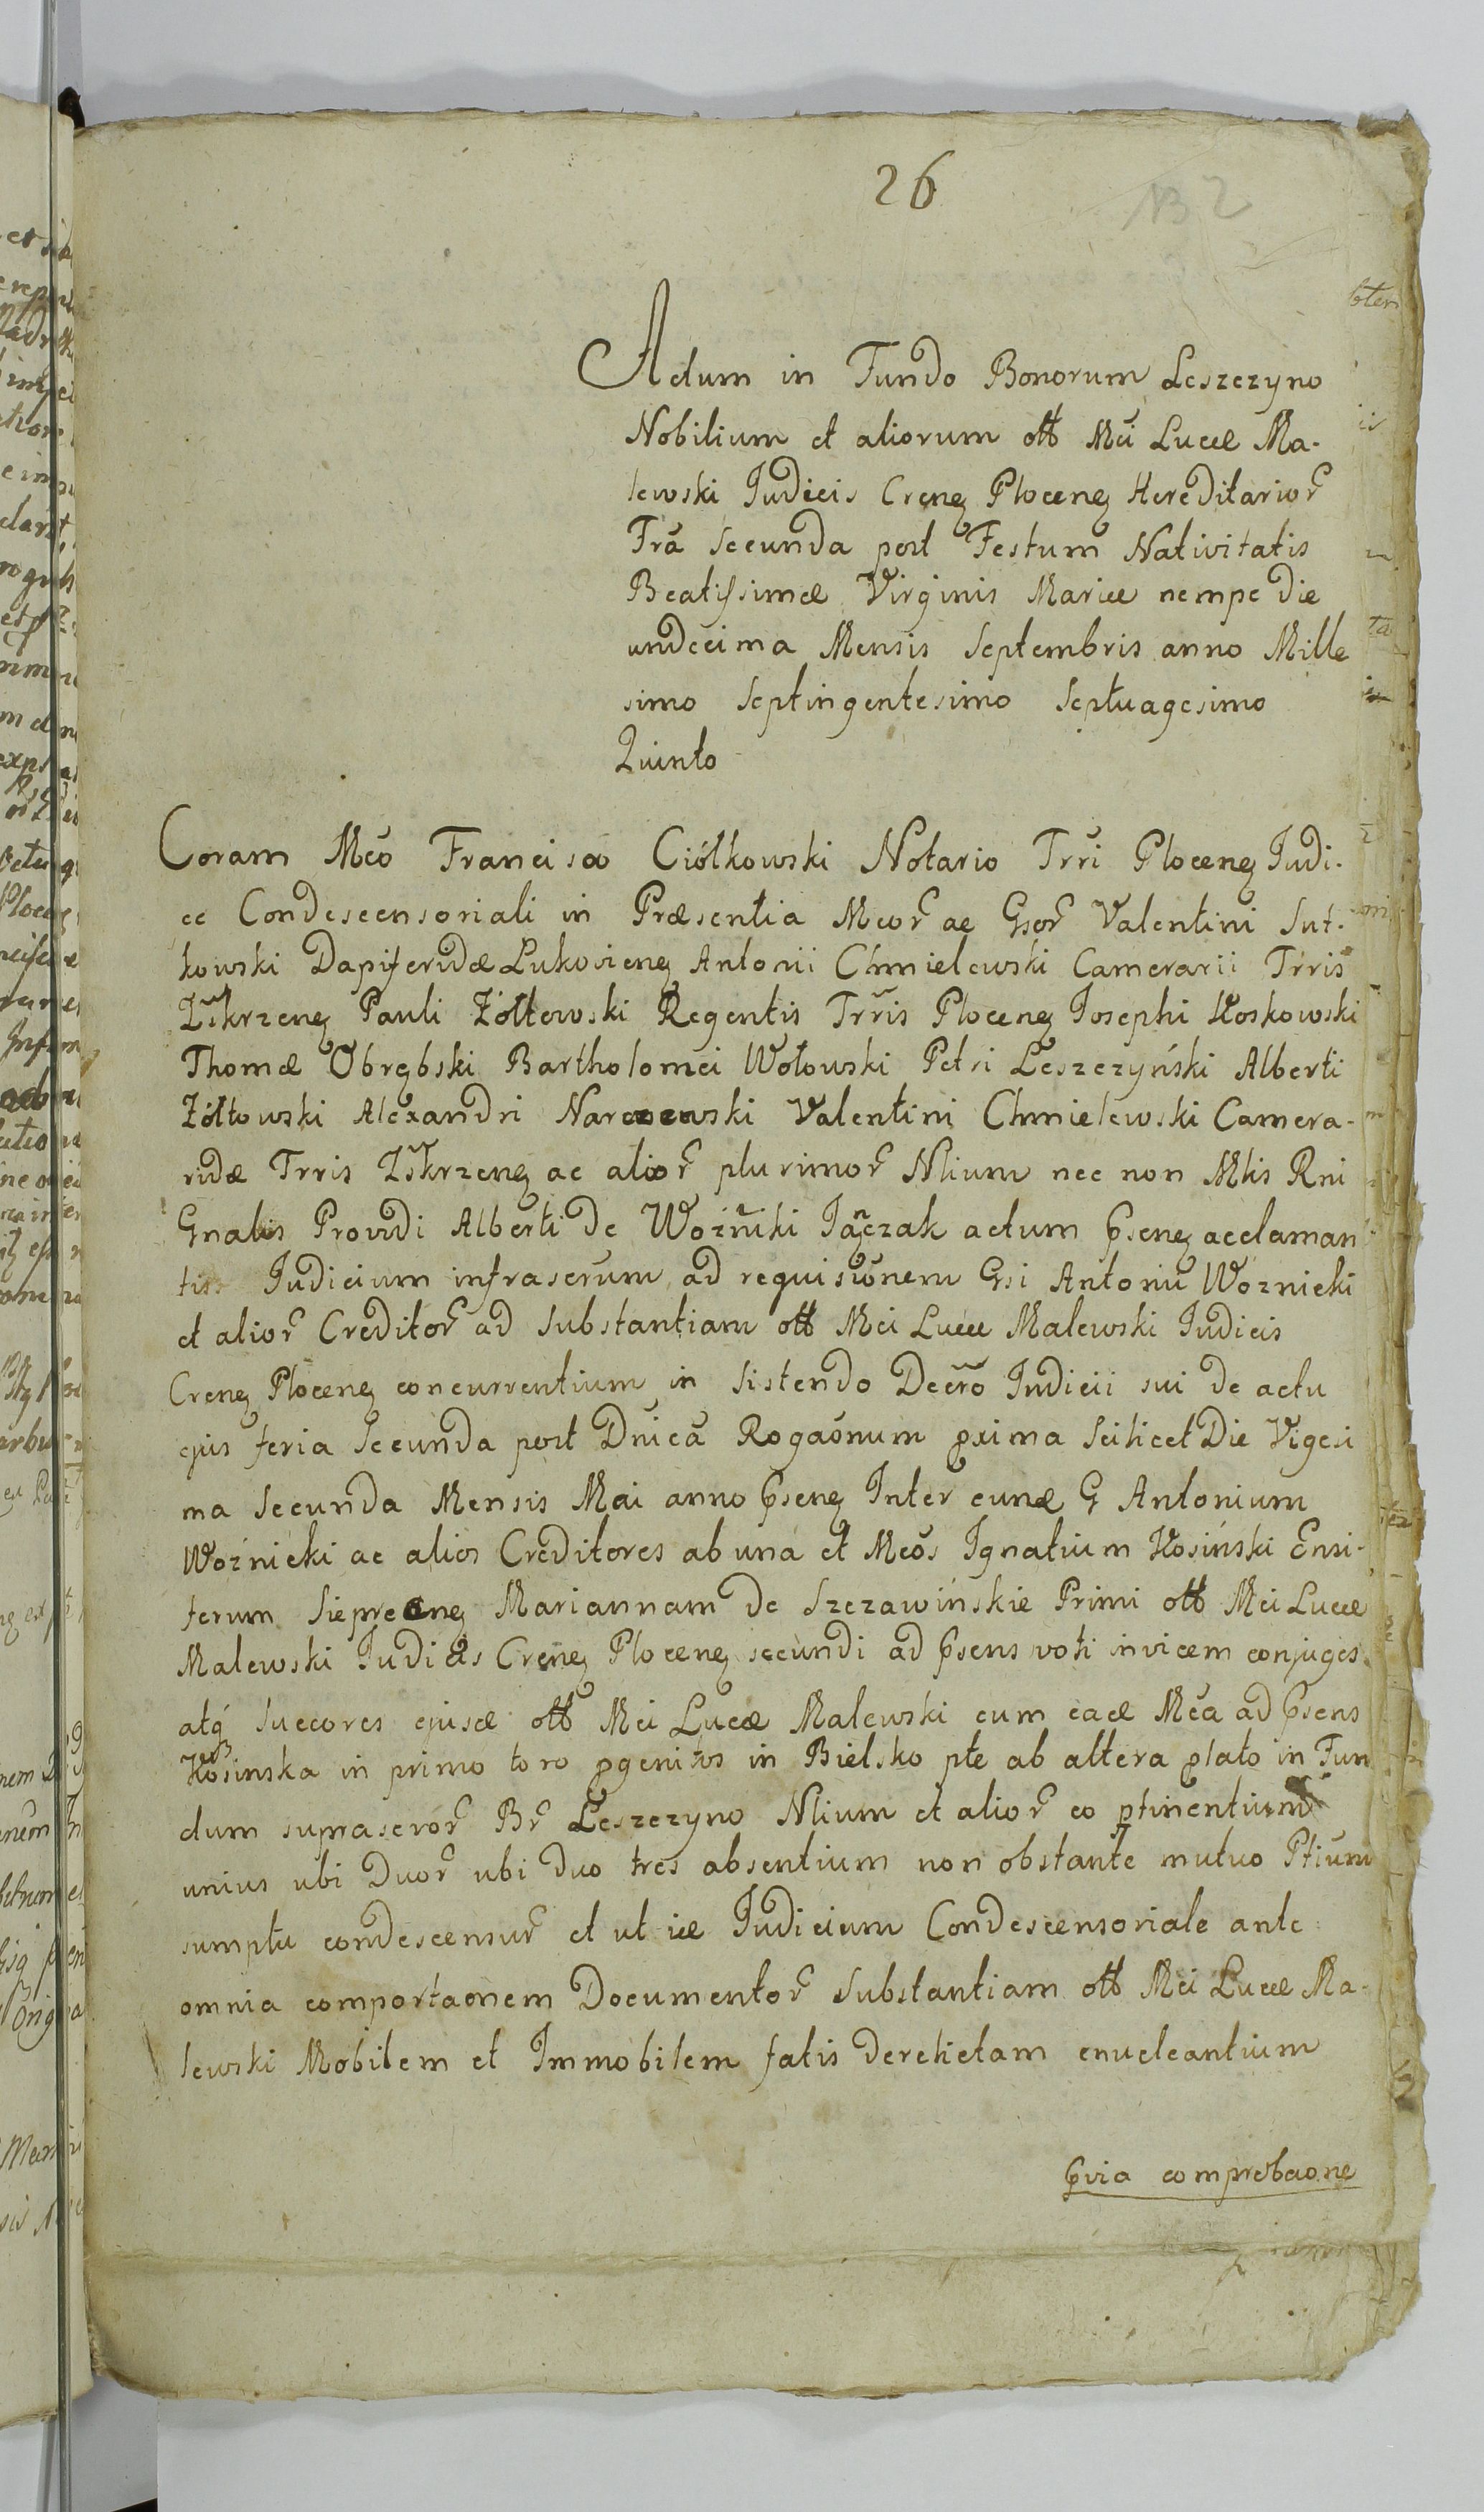 26
NB 2
Actum in Fundo Bonorum Leszczyno
Nobilium et aliorum ott Mci Lucæ Ma-
lewski Judicis Crenẹ Plocenẹ Hereditarior̃
Fr̃a Secunda post Festum Nativitatis
Beatissimæ Virginis Mariæ nempe Die
undecima Mensis Septembris anno Mille
simo Septingentesimo Septuagesimo
Quinto
Coram Mco Francisco Ciółkowski Notario Trri Plocenẹ Judi-
ce Condescensoriali in Præsentia Mcor̃ ac Gsor̃ Valentini Sut-
kowski Dapiferidæ Lukovienẹ Antonii Chmielewski Camerarii Trris
Zskrzenẹ Pauli Żółtowski Regentis Trris Plocenẹ Josephi Koskowski
Thomæ Obrębski Bartholomei Wołowski Petri Leszczyński Alberti
Żółtowski Alexandri Narczewski Valentini Chmielewski Camera-
ridæ Trris Zskrzenẹ ac alior̃ plurimor̃ Nlium nec non Mtis Rni
Gnalis Providi Alberti de Woźniki Jączak actum psenẹ acclaman
tis Judicium infrascrum ad requisiõnem Gsi Antonii Woznicki
et alior̃ Creditor̃ ad Substantiam ott Mci Lucæ Malewski Judicis
Crenẹ Plocenẹ concurrentium in Sistendo Decro Judicii sui de actu
ejus feria Secunda post Dnicã Rogaõnum pxima Scilicet Die Vigesi
ma Secunda Mensis Mai anno psenẹ Inter eunæ G Antonium
Woźnicki ac alios Creditores ab una et Mcos Ignatium Kosiński Ensi-
ferum Sieprcenẹ Mariannam de Szczawińskie Primi ott Mci Lucæ
Malewski Judicis Crenẹ Plocenẹ secundi ad psens voti invicem conjuges
atq̃ Succores ejusæ ott Mci Lucæ Malewski cum eaæ Mca ad psens
Kosinska in primo toro pgenitos in Bielsko pte ab altera plato in Fun
dum suprascror̃ Br̃ Leszczyno Nlium et alior̃ eo ptinentium
unius ubi Duor̃ ubi duo tres absentium non obstante mutuo Ptium
sumptu condescensur̃ et ut iæ Judicium Condescensoriale ante
omnia comportaõnem Documentor̃ Substantiam ott Mci Lucæ Ma-
lewski Mobilem et Immobilem fatis derelictam enucleantium
pvia comprobaone